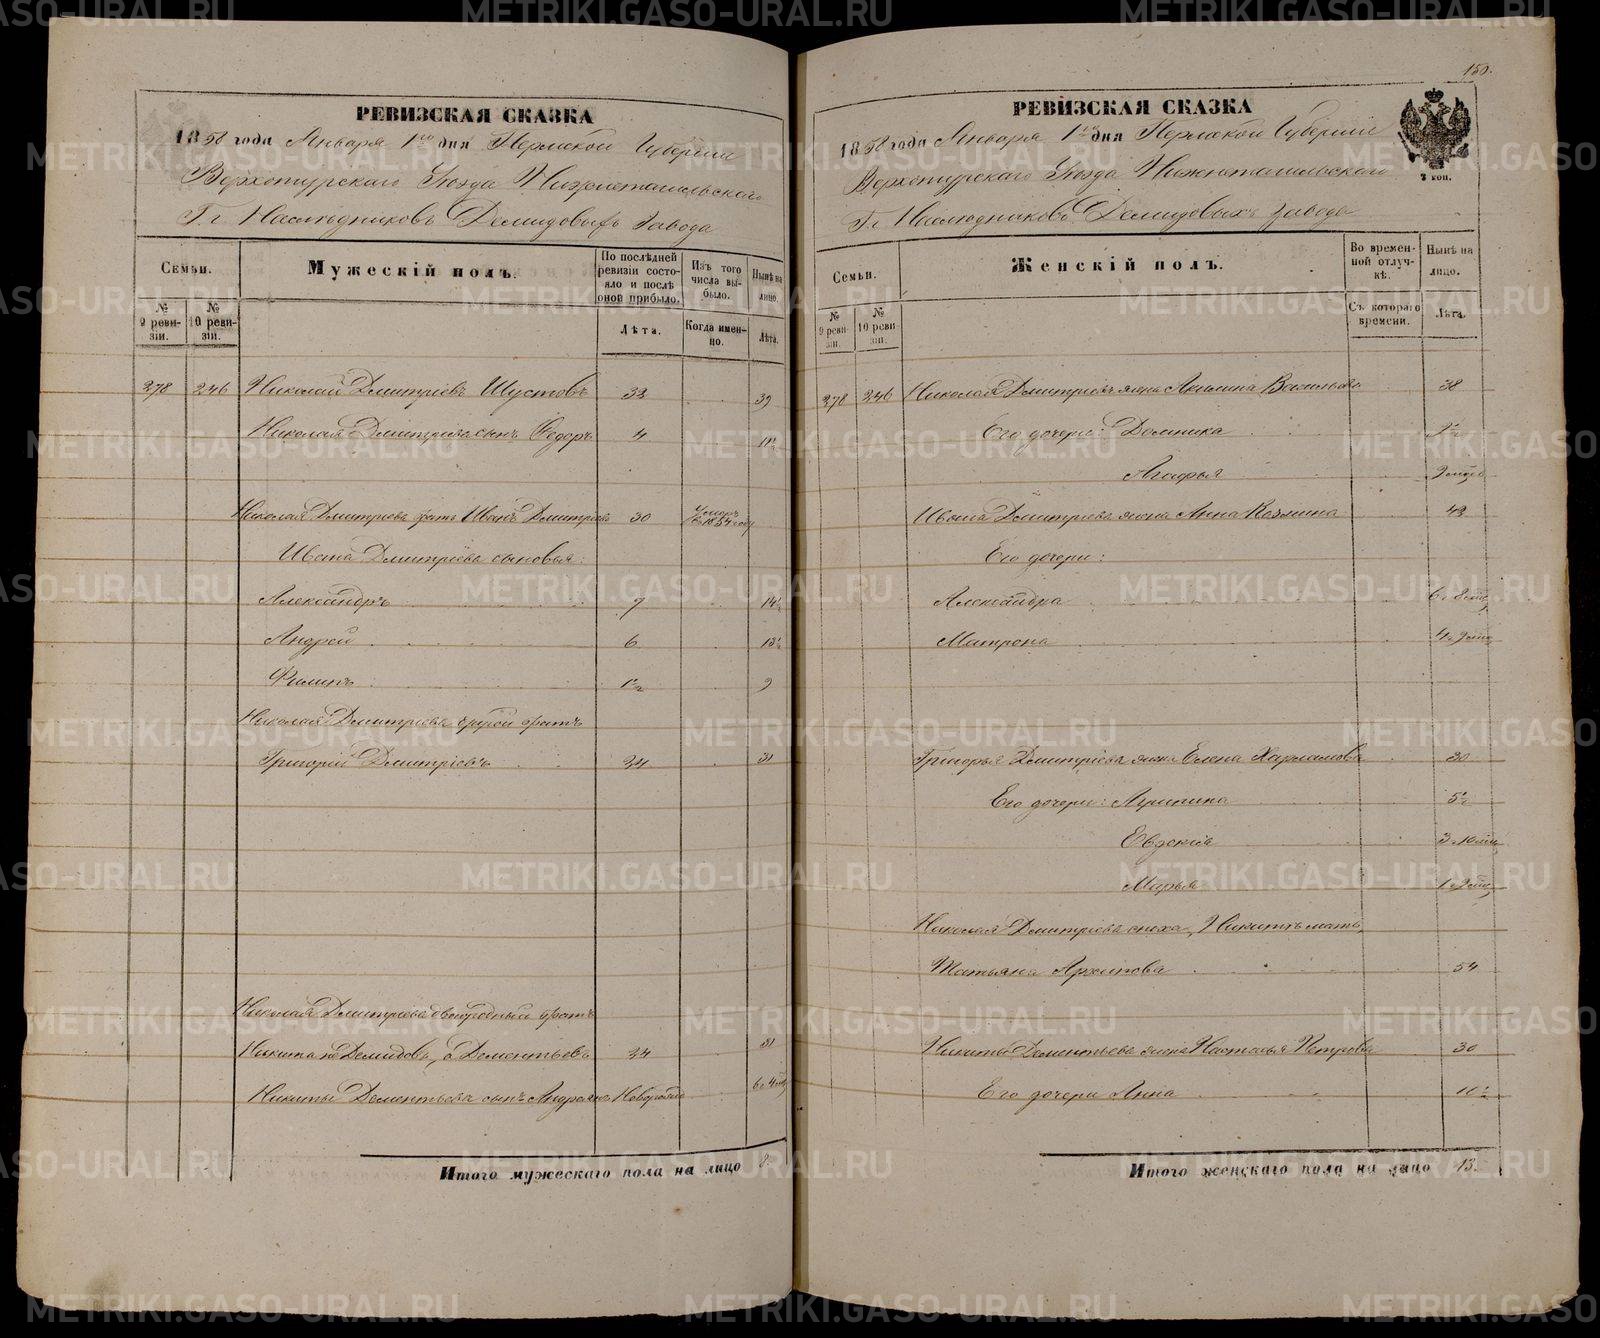 РЕВИЗСКАЯ СКАЗКА
1858 года Января 1го дня Пермской Губернии
Верхотурскаго Уезда Нижнетагильскаго
Г.г. Наследниковъ Демидовыхъ Завода
Семьи.
№ 9 ревизіи.
№ 10 ревизіи.
Мужескій полъ.
По послѣдней ревизіи состояло и послѣ оной прибыло.
Лѣта.
Изъ того числа выбыло.
Когда именно.
Нынѣ на лицо.
Лѣта.
278 246 Николай Дмитріевъ Шустовъ 32 39
Николая Дмитріева сынъ Федоръ 4 11½
Николая Дмитріева братъ Иванъ Дмитріевъ 30 Умеръ въ 1854 году
Ивана Дмитріева сыновья:
Александръ 7 14½
Андрей 6 13½
Филипъ 1½ 9
Николая Дмитріева другой братъ
Григорій Дмитріевъ 24 31
Николая Дмитріева двоюродный братъ
Никита не Демидовъ, а Дементьевъ 24 31
Никиты Дементьева сынъ Андреянъ Новорожд 6 4 мѣс
Итого мужескаго пола на лицо 8.
150.
РЕВИЗСКАЯ СКАЗКА
1858 года Января 1го дня Пермской Губерніи
3 коп.
Верхотурскаго Уезда Нижнетагильскаго
Г.г. Наследниковъ Демидовыхъ завода
Семьи.
№ 9 ревизіи.
№ 10 ревизіи.
Женскій полъ.
Во временной отлучкѣ.
Съ котораго времени.
Нынѣ на лицо.
Лѣта.
278 246 Николая Дмитріева жена Акилина Васильева 38
Его дочери: Домника 9½
Агафья 9 мѣсе
Ивана Дмитріева жена Анна Козмина 43
Его дочери:
Александра 6 8 мѣс
Матрена 4 9 мѣс
Григорья Дмитріева жена Елена Харламова 30
Его дочери: Агрипина 5½
Евдокія 3 10 мѣс
Марья 1 9 мѣс
Николая Дмитріева сноха, Никитѣ мать
Татьяна Архипова 54
Никиты Дементьева жена Настасья Петрова 30
Его дочери Анна 10½
Итого женскаго пола на лицо 13.
METRIKI.GASO-URAL.RU